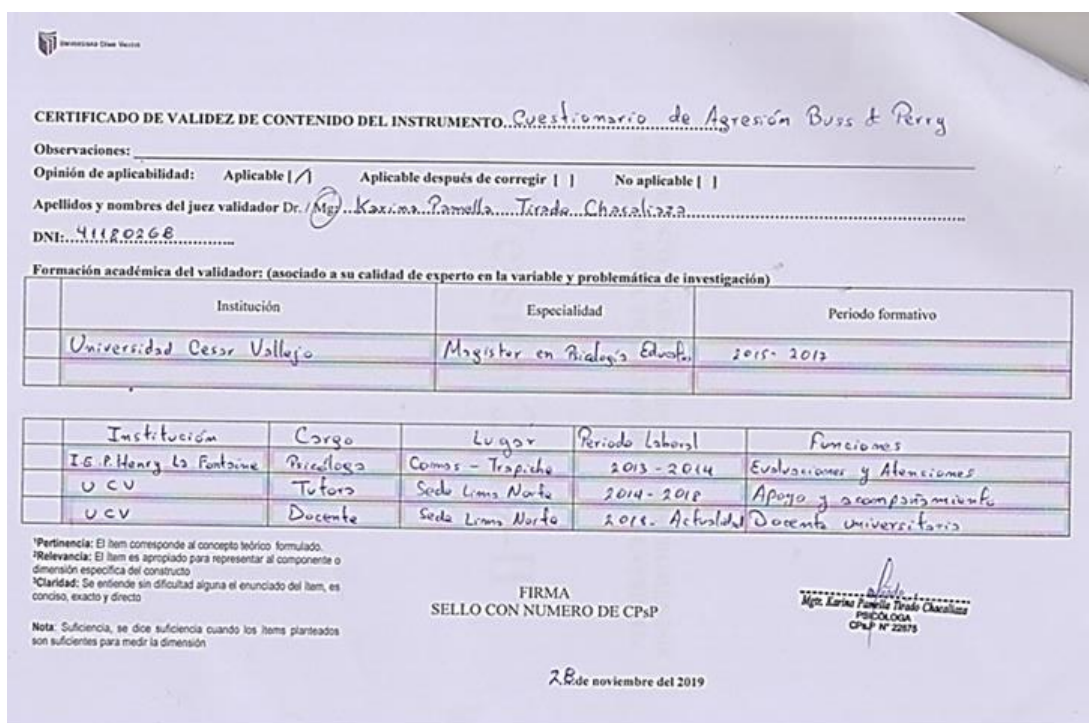 UNIVERSIDAD CÉSAR VALLEJO
CERTIFICADO DE VALIDEZ DE CONTENIDO DEL INSTRUMENTO. Cuestionario de Agresión Buss & Perry
Observaciones:
Opinión de aplicabilidad: Aplicable [/] Aplicable después de corregir [ ] No aplicable [ ]
Apellidos y nombres del juez validador Dr. / Mg: Karina Pamella Tirado Chacaliaza
DNI: 41180268
Formación académica del validador: (asociado a su calidad de experto en la variable y problemática de investigación)
Institución Especialidad Periodo formativo
Universidad Cesar Vallejo Magister en Psicología Educat. 2015-2017
Institución Cargo Lugar Periodo Laboral Funciones
I.E.P. Henry La Fontaine Psicóloga Comas - Trapiche 2013-2014 Evaluaciones y Atenciones
UCV Tutora Sede Lima Norte 2014-2018 Apoyo y acompañamiento
UCV Docente Sede Lima Norte Actualidad Docente universitaria
¹Pertinencia: El ítem corresponde al concepto teórico formulado.
²Relevancia: El ítem es apropiado para representar al componente o
dimensión específica del constructo
³Claridad: Se entiende sin dificultad alguna el enunciado del ítem, es
conciso, exacto y directo
Nota: Suficiencia, se dice suficiencia cuando los ítems planteados
son suficientes para medir la dimensión
FIRMA
SELLO CON NUMERO DE CPsP
Mgtr. Karina Pamella Tirado Chacaliaza
PSICÓLOGA
CPs.P N° 22675
28 de noviembre del 2019